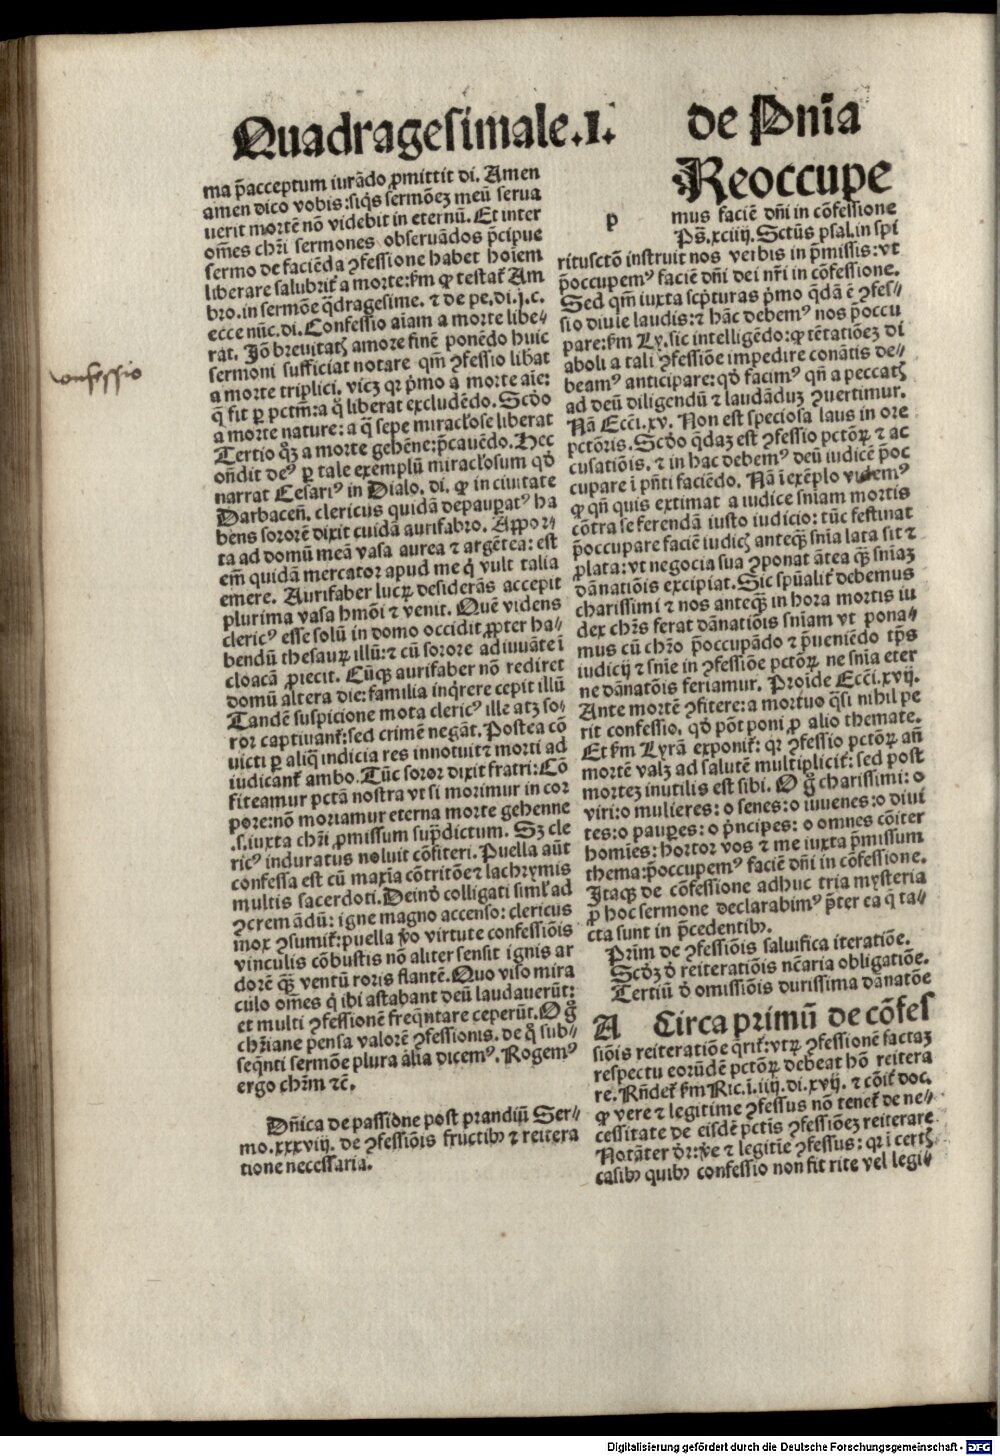 Quadragesimale.I. de Pnĩa
ma p̃acceptum iurãdo ꝓmittit di. Amen
amen dico vobis: siq̃s sermõeʒ meũ serua
uerit mortẽ nõ videbit in eternũ. Et inter
om̃es chr̃i sermones obseruãdos p̃cipue
sermo de faciẽda ꝯfessione habet hoĩem
liberare salubrit̃ a morte: s̃m ꝙ testat̃ Am
bro. in sermõe q̃dragesime. ⁊ de pe. di. j. c.
ecce nũc. di. Confessio aĩam a morte libe⸗
rat. Jõ breuitatꝭ amore finẽ ponẽdo huic
sermoni sufficiat notare qm̃ ꝯfessio lib̃at
a morte triplici. vicʒ qꝛ p̃mo a morte aĩe:
q̃ fit ꝑ pctm̃: a q̃ liberat excludẽdo. Scd̃o
a morte nature: a q̃ sepe miracľose liberat
Tertio q̃ʒ a morte gehẽne: p̃cauẽdo. Hec
oñdit deꝰ ꝑ tale exemplũ miracľosum qd̃
narrat Cesariꝰ in Dialo. di. ꝙ in ciuitate
Darbaceñ. clericus quidã depauꝑatꝰ ha
bens sororẽ dixit cuidã aurifabro. Appor⸗
ta ad domũ meã vasa aurea ⁊ argẽtea: est
em̃ quidã mercator apud me q̃ vult talia
emere. Aurifaber lucꝝ desiderãs accepit
plurima vasa hmõi ⁊ venit. Quẽ videns
clericꝰ esse solũ in domo occidit ꝓpter ha⸗
bendũ thesauꝝ illũ: ⁊ cũ sorore adiuuãte ĩ
cloacã ꝓiecit. Cũqꝫ aurifaber nõ rediret
domũ altera die: familia inq̃rere cepit illũ
Tandẽ suspicione mota clericꝰ ille atqꝫ so⸗
ror captiuant̃: sed crimẽ negãt. Postea cõ
uicti ꝑ aliq̃ indicia res innotuit ⁊ morti ad
iudicant̃ ambo. Tũc soror dixit fratri: Cõ
fiteamur pctã nostra vt si morimur in cor
pore: nõ moriamur eterna morte gehenne
.s. iuxta chr̃i ꝓmissum sup̃dictum. Sʒ cle
ricꝰ induratus noluit cõfiteri. Puella aũt
confessa est cũ maxĩa cõtritõe ⁊ lachrymis
multis sacerdoti. Deind̃ colligati siml̃ ad
ꝯcremãdũ: igne magno accenso: clericus
mox ꝯsumit̃: puella ṽo virtute confessiõis
vinculis cõbustis nõ aliter sensit ignis ar
dorẽ q̃ꝫ ventũ roris flantẽ. Quo viso mira
culo om̃es q̃ ibi astabant deũ laudauerũt:
et multi ꝯfessionẽ freq̃ntare ceperũt. O g̃
chr̃iane pensa valorẽ ꝯfessionis. de q̃ sub⸗
seq̃nti sermõe plura ãlia dicemꝰ. Rogemꝰ
ergo chr̃m ⁊c̃.
Dñica de passione post prandiũ Ser⸗
mo. xxxviij. de ꝯfessiõis fructibꝰ ⁊ reitera
tione necessaria.
confessio
p
Reoccupe
mus faciẽ dñi in cõfessione
Ps̃. xciiij. Sctũs psal. in spi
ritusctõ instruit nos verbis in p̃missis: vt
p̃occupemꝰ faciẽ dñi dei nr̃i in cõfessione.
Sed qm̃ iuxta scp̃turas p̃mo q̃dã ẽ ꝯfes⸗
sio diuie laudis: ⁊ hãc debemꝰ nos p̃occu
pare: s̃m Ly. sic intelligẽdo: ꝙ tẽtatiõeʒ di
aboli a tali ꝯfessiõe impedire conãtis de⸗
beamꝰ anticipare: qd̃ facimꝰ qñ a peccatꝭ
ad deũ diligendũ ⁊ laudãduʒ ꝯuertimur.
Nã Ecc̃i. xv. Non est speciosa laus in ore
pctõris. Scd̃o q̃daʒ est ꝯfessio pctõꝝ ⁊ ac
cusatiõis. ⁊ in hac debemꝰ deũ iudicẽ p̃oc
cupare ĩ pñti faciẽdo. Nã ĩ exẽplo videmꝰ
ꝙ qñ quis extimat a iudice sñiam mortis
cõtra se ferendã iusto iudicio: tũc festinat
p̃occupare faciẽ iudicꝭ anteq̃ꝫ sñia lata sit ⁊
ꝓlata: vt negocia sua ꝯponat ãtea q̃ꝫ sñiaʒ
dãnatiõis excipiat. Sic spũalit̃ debemus
charissimi ⁊ nos anteq̃ꝫ in hora mortis iu
dex chr̃s ferat dãnatiõis sñiam vt pona⸗
mus cũ chr̃o p̃occupãdo ⁊ p̃ueniẽdo tp̃s
iudicij ⁊ sñie in ꝯfessiõe pctõꝝ ne sñia eter
ne dãnatõis feriamur. Proĩde Ecc̃i. xvij.
Ante mortẽ ꝯfitere: a mortuo q̃si nihil pe
rit confessio. qd̃ põt poni ꝓ alio themate.
Et s̃m Lyrã exponit̃: qꝛ ꝯfessio pctõꝝ añ
mortẽ valʒ ad salutẽ multiplicit̃: sed post
morteʒ inutilis est sibi. O g̃ charissimi: o
viri: o mulieres: o senes: o iuuenes: o diui
tes: o pauꝑes: o p̃ncipes: o omnes cõiter
homĩes: hortor vos ⁊ me iuxta p̃missum
thema: p̃occupemꝰ faciẽ dñi in cõfessione.
Jtaqꝫ de cõfessione adhuc tria mysteria
ꝓ hoc sermone declarabimꝰ p̃ter ea q̃ ta⸗
cta sunt in p̃cedentibꝰ.
Prĩm de ꝯfessiõis saluifica iteratiõe.
Scd̃ʒ d̃ reiteratiõis ncãria obligatiõe.
Tertiũ d̃ omissiõis durissima dãnatõe
A Circa primũ de cõfes
siõis reiteratiõe q̃rit̃: vtꝝ ꝯfessionẽ factaʒ
respectu eorũdẽ pctõꝝ debeat hõ reitera
re. Rñdet̃ s̃m Ric. ĩ. iiij. di. xvij. ⁊ cõit̃ doc.
ꝙ vere ⁊ legitime ꝯfessus nõ tenet̃ de ne⸗
cessitate de eisdẽ pctĩs ꝯfessiõeʒ reiterare
Notãter dr̃: ṽe ⁊ legitĩe ꝯfessus: qꝛ ĩ certꝭ
casibꝰ quibꝰ confessio non fit rite vel legi⸗
Digitalisierung gefördert durch die Deutsche Forschungsgemeinschaft - DFG